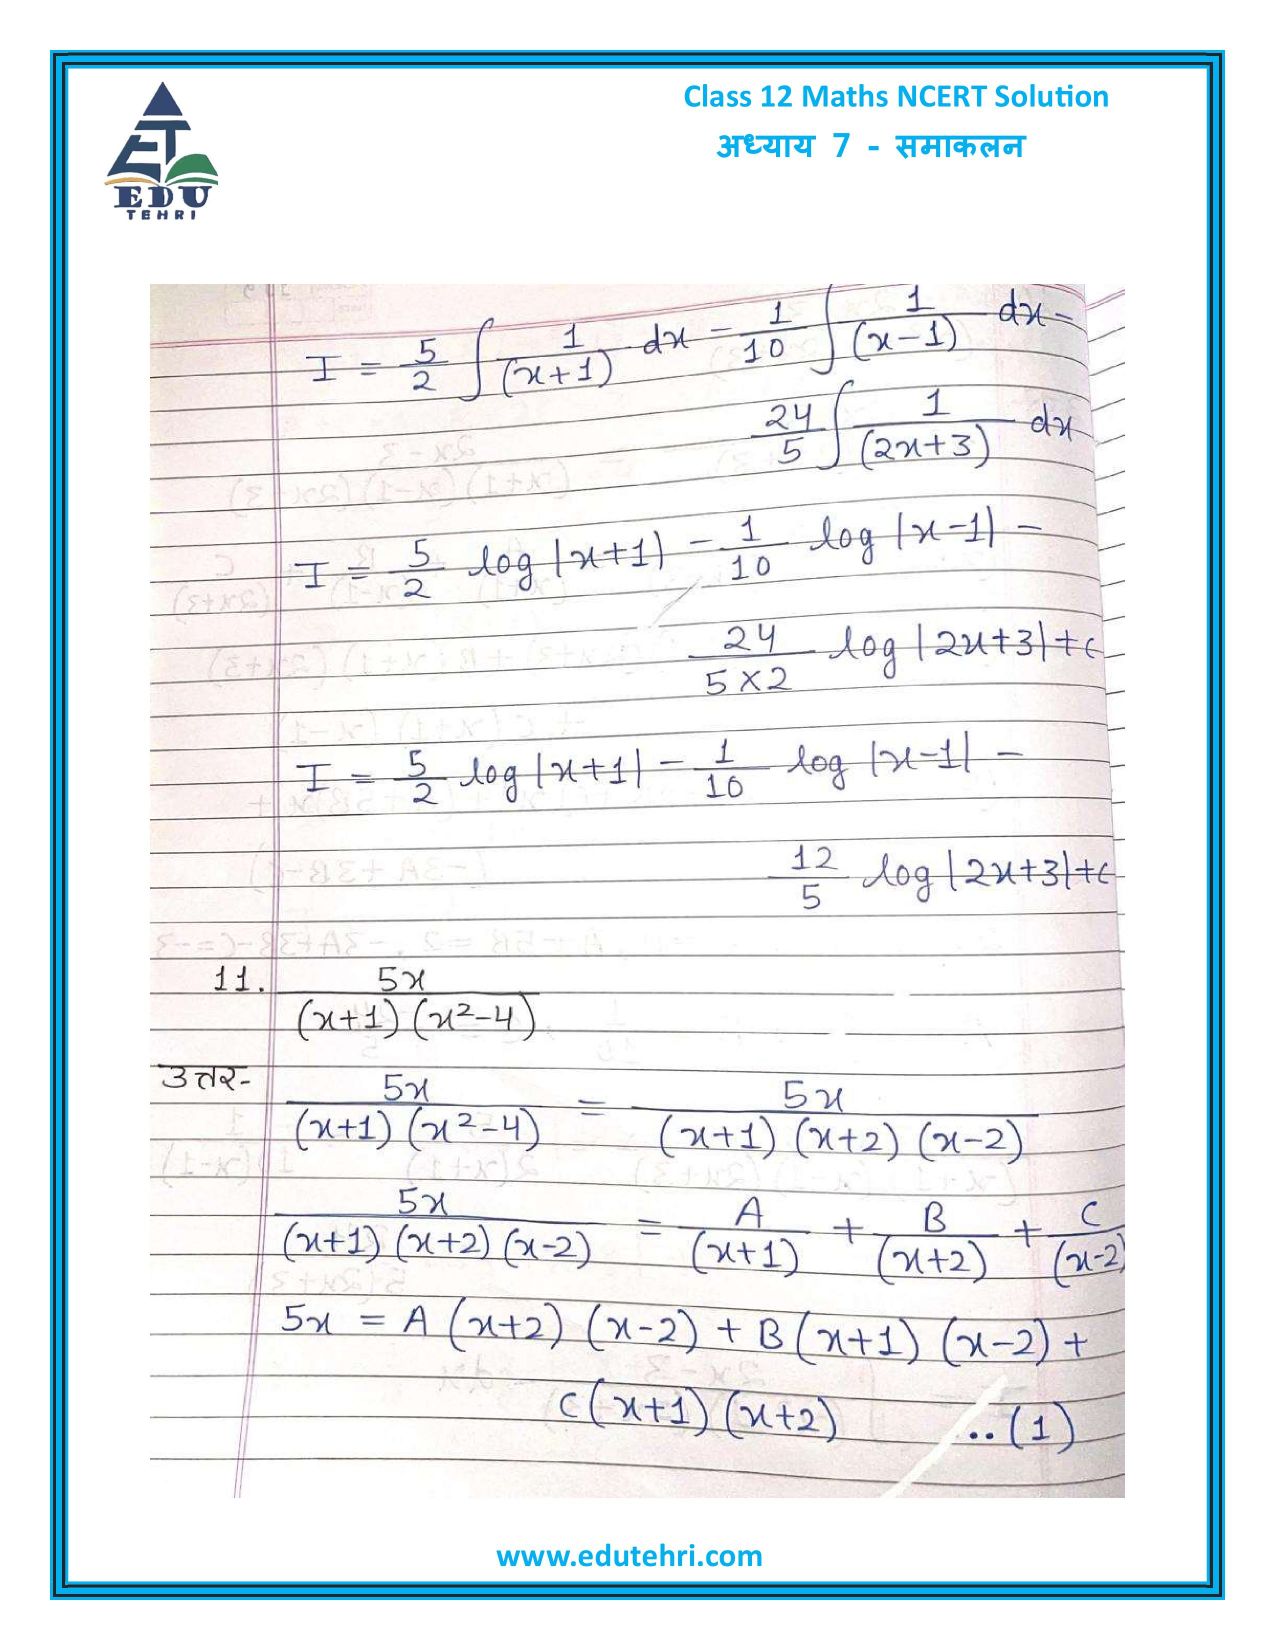 Class 12 Maths NCERT Solution
अध्याय 7 - समाकलन
EDU
TEHRI
I = 5/2 ∫ 1/(x+1) dx - 1/10 ∫ 1/(x-1) dx -
24/5 ∫ 1/(2x+3) dx
I = 5/2 log|x+1| - 1/10 log|x-1| -
24/5×2 log|2x+3|+c
I = 5/2 log|x+1| - 1/10 log|x-1| -
12/5 log|2x+3|+c
11. 5x/(x+1)(x²-4)
उत्तर- 5x/(x+1)(x²-4) = 5x/(x+1)(x+2)(x-2)
5x/(x+1)(x+2)(x-2) = A/(x+1) + B/(x+2) + C/(x-2)
5x = A(x+2)(x-2) + B(x+1)(x-2) +
C(x+1)(x+2) ..(1)
www.edutehri.com